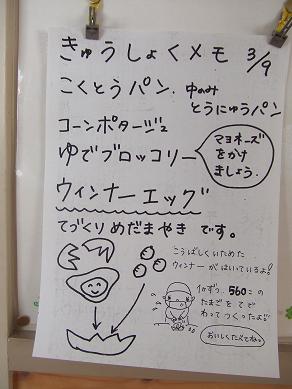 きゅうしょくメモ 3/9
こくとうパン. 中のみ
とうにゅうパン
コーンポタージュ
ゆでブロッコリー
マヨネーズ
をかけ
ましょう.
ウィンナーエッグ
てづくりめだまやき です。
こうばしくいためた
ウィンナーがはいているよ!
1かずつ. 560この
たまごをてで
わってつくったよ!!
おいしくたべてね。